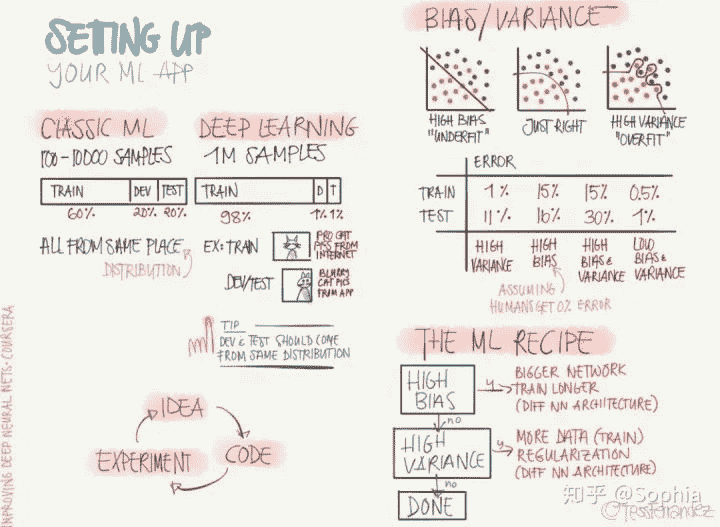 SETING UP
YOUR ML APP
CLASSIC ML
100-10000 SAMPLES
TRAIN DEV TEST
60% 20% 20%
ALL FROM SAME PLACE
DISTRIBUTION
DEEP LEARNING
1M SAMPLES
TRAIN D T
98% 1% 1%
EX: TRAIN
PRO CAT
PICS FROM
INTERNET
DEV/TEST
BLURRY
CAT PICS
FROM APP
TIP
DEV & TEST SHOULD COME
FROM SAME DISTRIBUTION
IDEA
CODE
EXPERIMENT
IMPROVING DEEP NEURAL NETS · COURSERA
BIAS/VARIANCE
HIGH BIAS
"UNDERFIT"
JUST RIGHT
HIGH VARIANCE
"OVERFIT"
ERROR
TRAIN 1% 15% 15% 0.5%
TEST 11% 16% 30% 1%
HIGH VARIANCE
HIGH BIAS
HIGH BIAS & VARIANCE
LOW BIAS & VARIANCE
ASSUMING
HUMANS GET 0% ERROR
THE ML RECIPE
HIGH
BIAS
y
BIGGER NETWORK
TRAIN LONGER
(DIFF NN ARCHITECTURE)
no
HIGH
VARIANCE
y
MORE DATA (TRAIN)
REGULARIZATION
(DIFF NN ARCHITECTURE)
no
DONE
知乎 @Sophia
@TessFerrandez